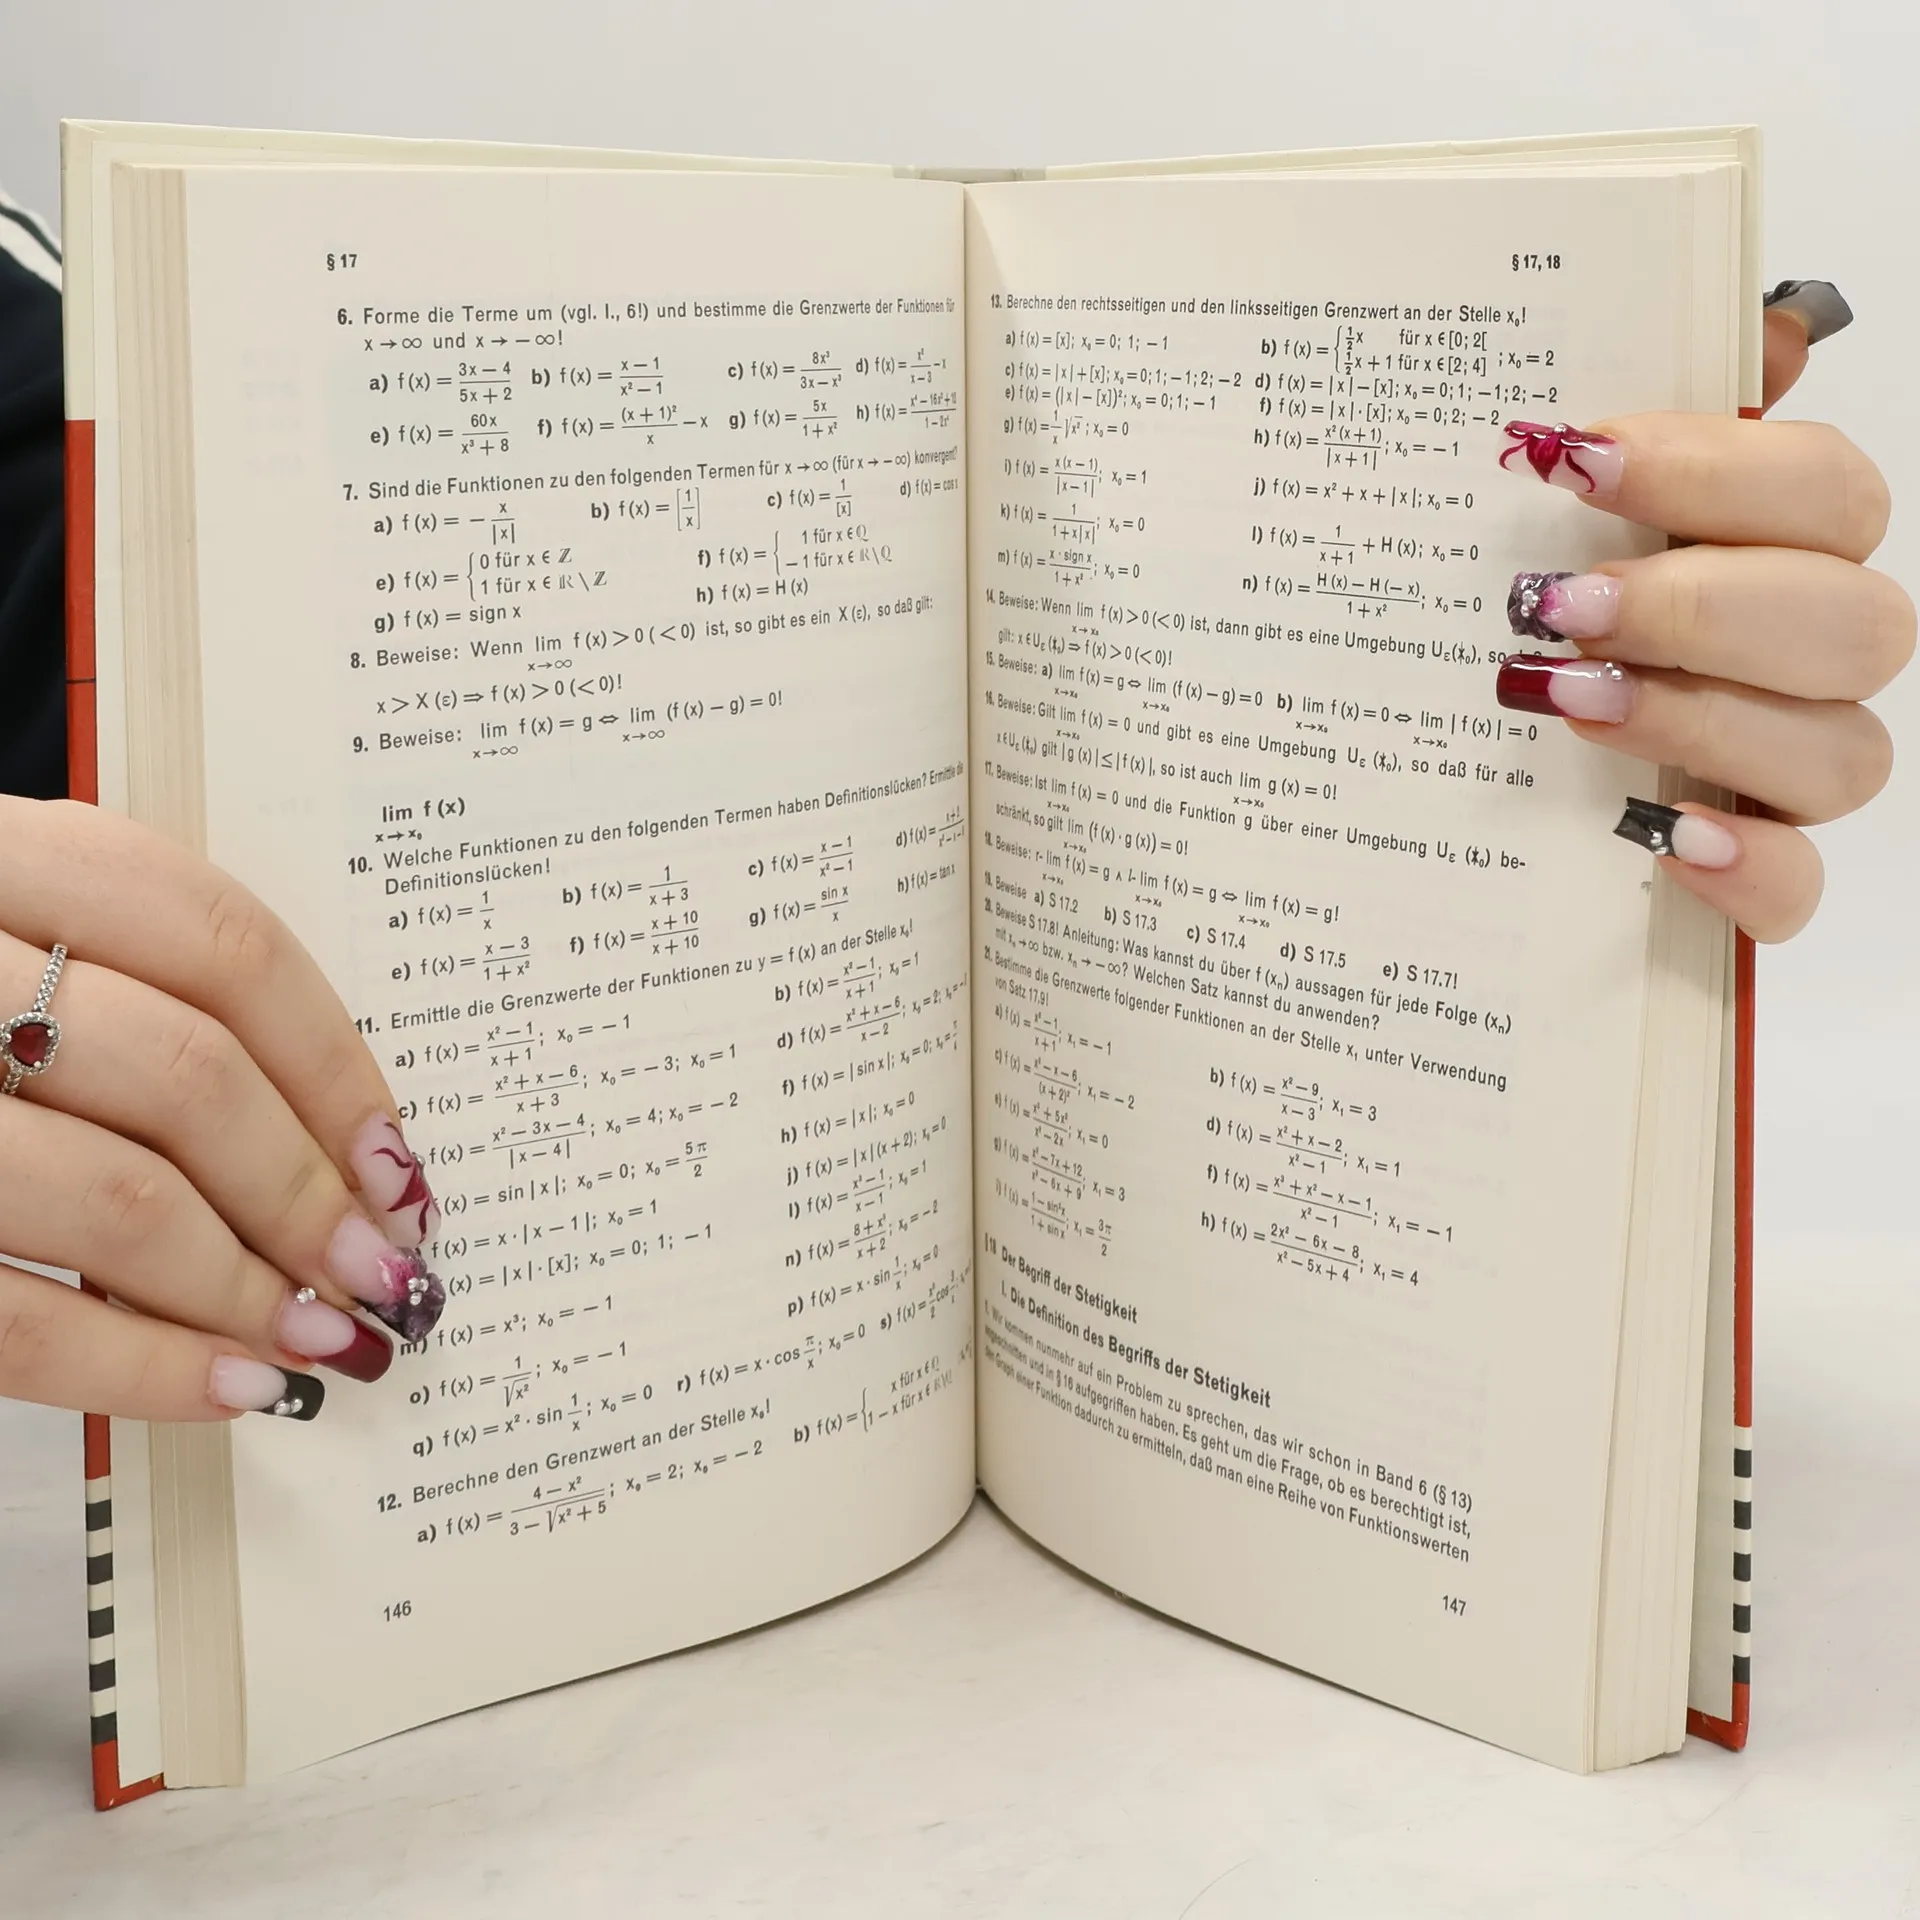 § 17
6. Forme die Terme um (vgl. I., 6!) und bestimme die Grenzwerte der Funktionen für
x → ∞ und x → − ∞!
a) f (x) = (3x − 4)/(5x + 2) b) f (x) = (x − 1)/(x² − 1) c) f (x) = 8x³/(3x − x³) d) f (x) = x²/(x − 3) − x
e) f (x) = 60x/(x³ + 8) f) f (x) = (x + 1)²/x − x g) f (x) = 5x/(1 + x²) h) f (x) =
7. Sind die Funktionen zu den folgenden Termen für x → ∞ (für x → − ∞) konvergent?
a) f (x) = − x/|x| b) f (x) = [1/x] c) f (x) = 1/[x] d) f (x) = cos x
e) f (x) = { 0 für x ∈ ℤ
1 für x ∈ ℝ \ ℤ
f) f (x) = { 1 für x ∈ ℚ
− 1 für x ∈ ℝ \ ℚ
g) f (x) = sign x h) f (x) = H (x)
8. Beweise: Wenn lim x→∞ f (x) > 0 (< 0) ist, so gibt es ein X (ε), so daß gilt:
x > X (ε) ⇒ f (x) > 0 (< 0)!
9. Beweise: lim x→∞ f (x) = g ⇔ lim x→∞ (f (x) − g) = 0!
lim x→x₀ f (x)
10. Welche Funktionen zu den folgenden Termen haben Definitionslücken? Ermittle die
Definitionslücken!
a) f (x) = 1/x b) f (x) = 1/(x + 3) c) f (x) = (x − 1)/(x² − 1) d) f (x) =
e) f (x) = (x − 3)/(1 + x²) f) f (x) = (x + 10)/(x + 10) g) f (x) = sin x/x h) f (x) = tan x
11. Ermittle die Grenzwerte der Funktionen zu y = f (x) an der Stelle x₀!
a) f (x) = (x² − 1)/(x + 1); x₀ = − 1 b) f (x) = (x² − 1)/(x + 1); x₀ = 1
c) f (x) = (x² + x − 6)/(x + 3); x₀ = − 3; x₀ = 1 d) f (x) = (x² + x − 6)/(x − 2); x₀ = 2; x₀ =
f (x) = (x² − 3x − 4)/|x − 4|; x₀ = 4; x₀ = − 2 f) f (x) = | sin x |; x₀ = 0; x₀ =
(x) = sin | x |; x₀ = 0; x₀ = 5π/2 h) f (x) = | x |; x₀ = 0
f (x) = x · | x − 1 |; x₀ = 1 j) f (x) = | x | (x + 2); x₀ = 0
(x) = | x | · [x]; x₀ = 0; 1; − 1 l) f (x) = (x² − 1)/(x − 1); x₀ = 1
m) f (x) = x³; x₀ = − 1 n) f (x) = (8 + x³)/(x + 2); x₀ = − 2
o) f (x) = 1/√x²; x₀ = − 1 p) f (x) = x · sin 1/x; x₀ = 0
q) f (x) = x² · sin 1/x; x₀ = 0 r) f (x) = x · cos π/x; x₀ = 0 s) f (x) =
12. Berechne den Grenzwert an der Stelle x₀!
a) f (x) = (4 − x²)/(3 − √(x² + 5)); x₀ = 2; x₀ = − 2 b) f (x) = { x für x ∈ ℚ
1 − x für x ∈ ℝ \ ℚ
146
§ 17, 18
13. Berechne den rechtsseitigen und den linksseitigen Grenzwert an der Stelle x₀!
a) f (x) = [x]; x₀ = 0; 1; − 1 b) f (x) = { ½x für x ∈ [0; 2[
½x + 1 für x ∈ [2; 4] ; x₀ = 2
c) f (x) = | x | + [x]; x₀ = 0; 1; − 1; 2; − 2 d) f (x) = | x | − [x]; x₀ = 0; 1; − 1; 2; − 2
e) f (x) = (| x | − [x])²; x₀ = 0; 1; − 1 f) f (x) = | x | · [x]; x₀ = 0; 2; − 2
g) f (x) = 1/x √x²; x₀ = 0 h) f (x) = x² (x + 1)/|x + 1|; x₀ = − 1
i) f (x) = x (x − 1)/|x − 1|; x₀ = 1 j) f (x) = x² + x + | x |; x₀ = 0
k) f (x) = 1/(1 + x|x|); x₀ = 0 l) f (x) = 1/(x + 1) + H (x); x₀ = 0
m) f (x) = x · sign x/(1 + x²); x₀ = 0 n) f (x) = (H (x) − H (− x))/(1 + x²); x₀ = 0
14. Beweise: Wenn lim x→x₀ f (x) > 0 (< 0) ist, dann gibt es eine Umgebung Uε(ẋ₀), so
gilt: x ∈ Uε (ẋ₀) ⇒ f (x) > 0 (< 0)!
15. Beweise: a) lim x→x₀ f (x) = g ⇔ lim x→x₀ (f (x) − g) = 0 b) lim x→x₀ f (x) = 0 ⇔ lim x→x₀ | f (x) | = 0
16. Beweise: Gilt lim x→x₀ f (x) = 0 und gibt es eine Umgebung Uε (ẋ₀), so daß für alle
x ∈ Uε (ẋ₀) gilt | g (x) | ≤ | f (x) |, so ist auch lim x→x₀ g (x) = 0!
17. Beweise: Ist lim x→x₀ f (x) = 0 und die Funktion g über einer Umgebung Uε (ẋ₀) be-
schränkt, so gilt lim x→x₀ (f (x) · g (x)) = 0!
18. Beweise: r- lim x→x₀ f (x) = g ∧ l- lim x→x₀ f (x) = g ⇔ lim x→x₀ f (x) = g!
19. Beweise a) S 17.2 b) S 17.3 c) S 17.4 d) S 17.5 e) S 17.7!
20. Beweise S 17.8! Anleitung: Was kannst du über f (xₙ) aussagen für jede Folge (xₙ)
mit xₙ → ∞ bzw. xₙ → − ∞? Welchen Satz kannst du anwenden?
21. Bestimme die Grenzwerte folgender Funktionen an der Stelle x₁ unter Verwendung
von Satz 17.9!
a) f (x) = (x² − 1)/(x + 1); x₁ = − 1 b) f (x) = (x² − 9)/(x − 3); x₁ = 3
c) f (x) = (x² − x − 6)/(x + 2)²; x₁ = − 2 d) f (x) = (x² + x − 2)/(x² − 1); x₁ = 1
e) f (x) = (x³ + 5x²)/(x² − 2x); x₁ = 0 f) f (x) = (x³ + x² − x − 1)/(x² − 1); x₁ = − 1
g) f (x) = (x² − 7x + 12)/(x² − 6x + 9); x₁ = 3 h) f (x) = (2x² − 6x − 8)/(x² − 5x + 4); x₁ = 4
i) f (x) = (1 − sin²x)/(1 + sin x); x₁ = 3π/2
§ 18 Der Begriff der Stetigkeit
I. Die Definition des Begriffs der Stetigkeit
1. Wir kommen nunmehr auf ein Problem zu sprechen, das wir schon in Band 6 (§ 13)
angeschnitten und in § 16 aufgegriffen haben. Es geht um die Frage, ob es berechtigt ist,
den Graph einer Funktion dadurch zu ermitteln, daß man eine Reihe von Funktionswerten
147